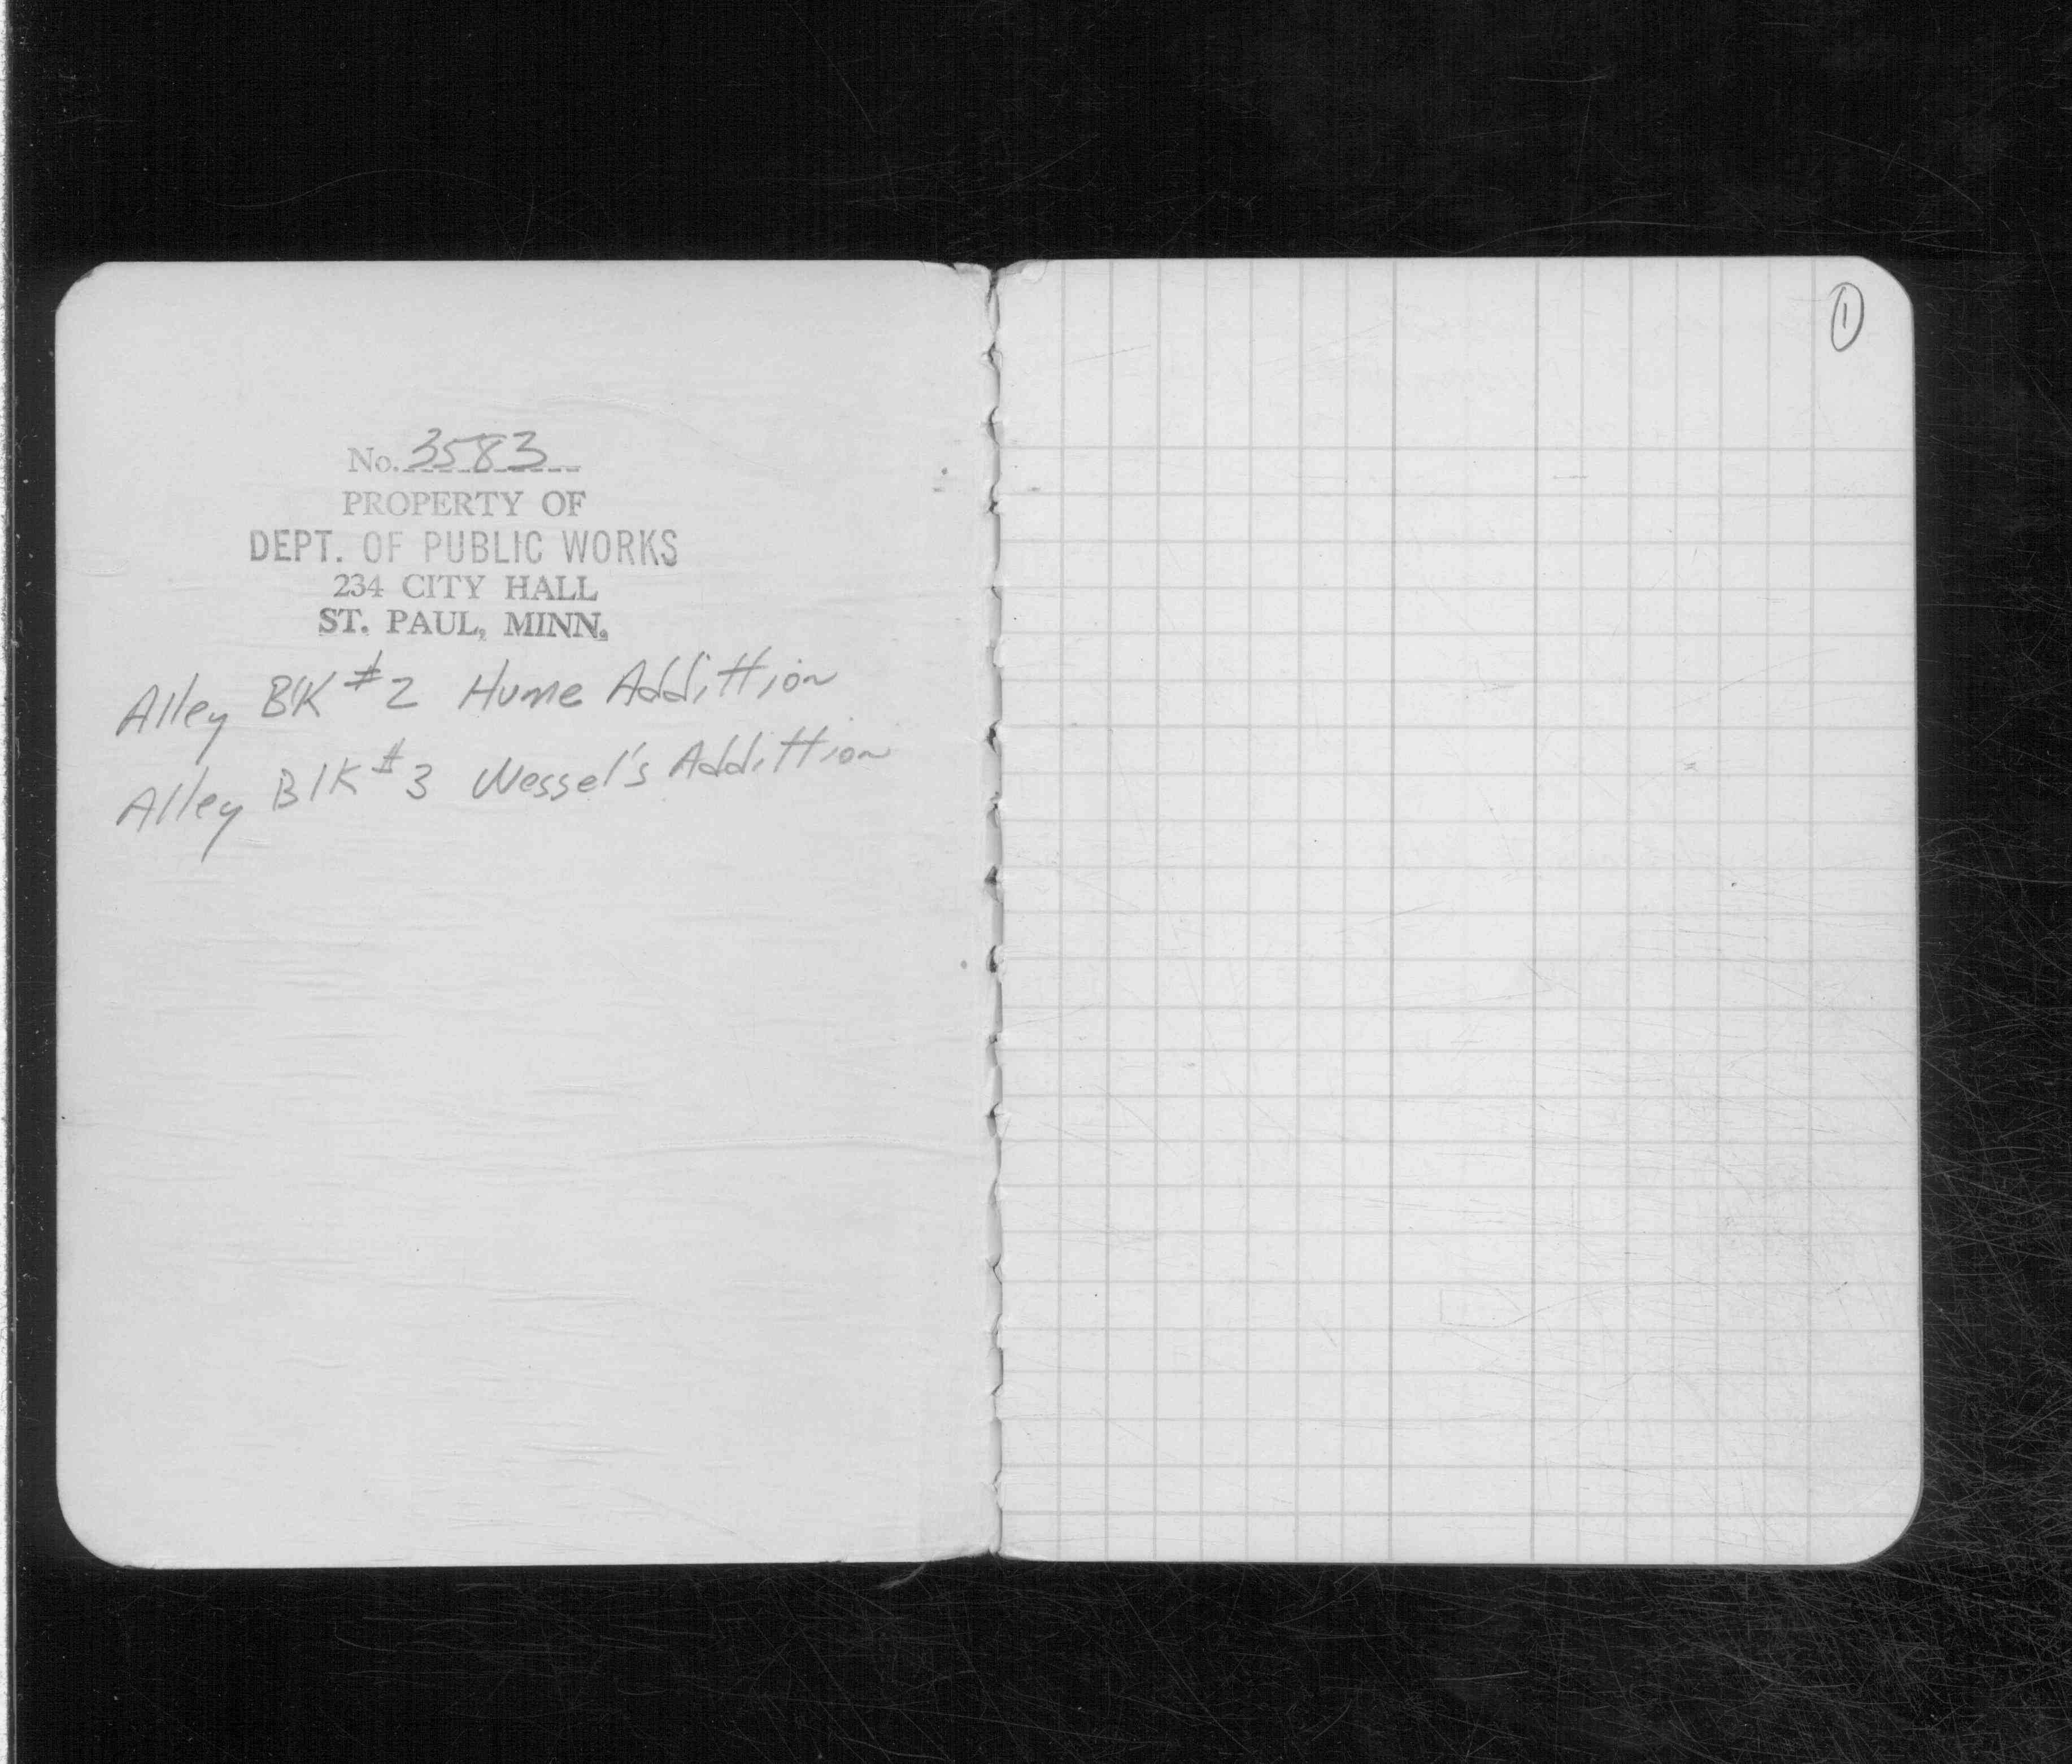 No. 3583
PROPERTY OF
DEPT. OF PUBLIC WORKS
234 CITY HALL
ST. PAUL, MINN.
Alley Blk #2 Hume Addittion
Alley Blk #3 Wessel's Addittion
1